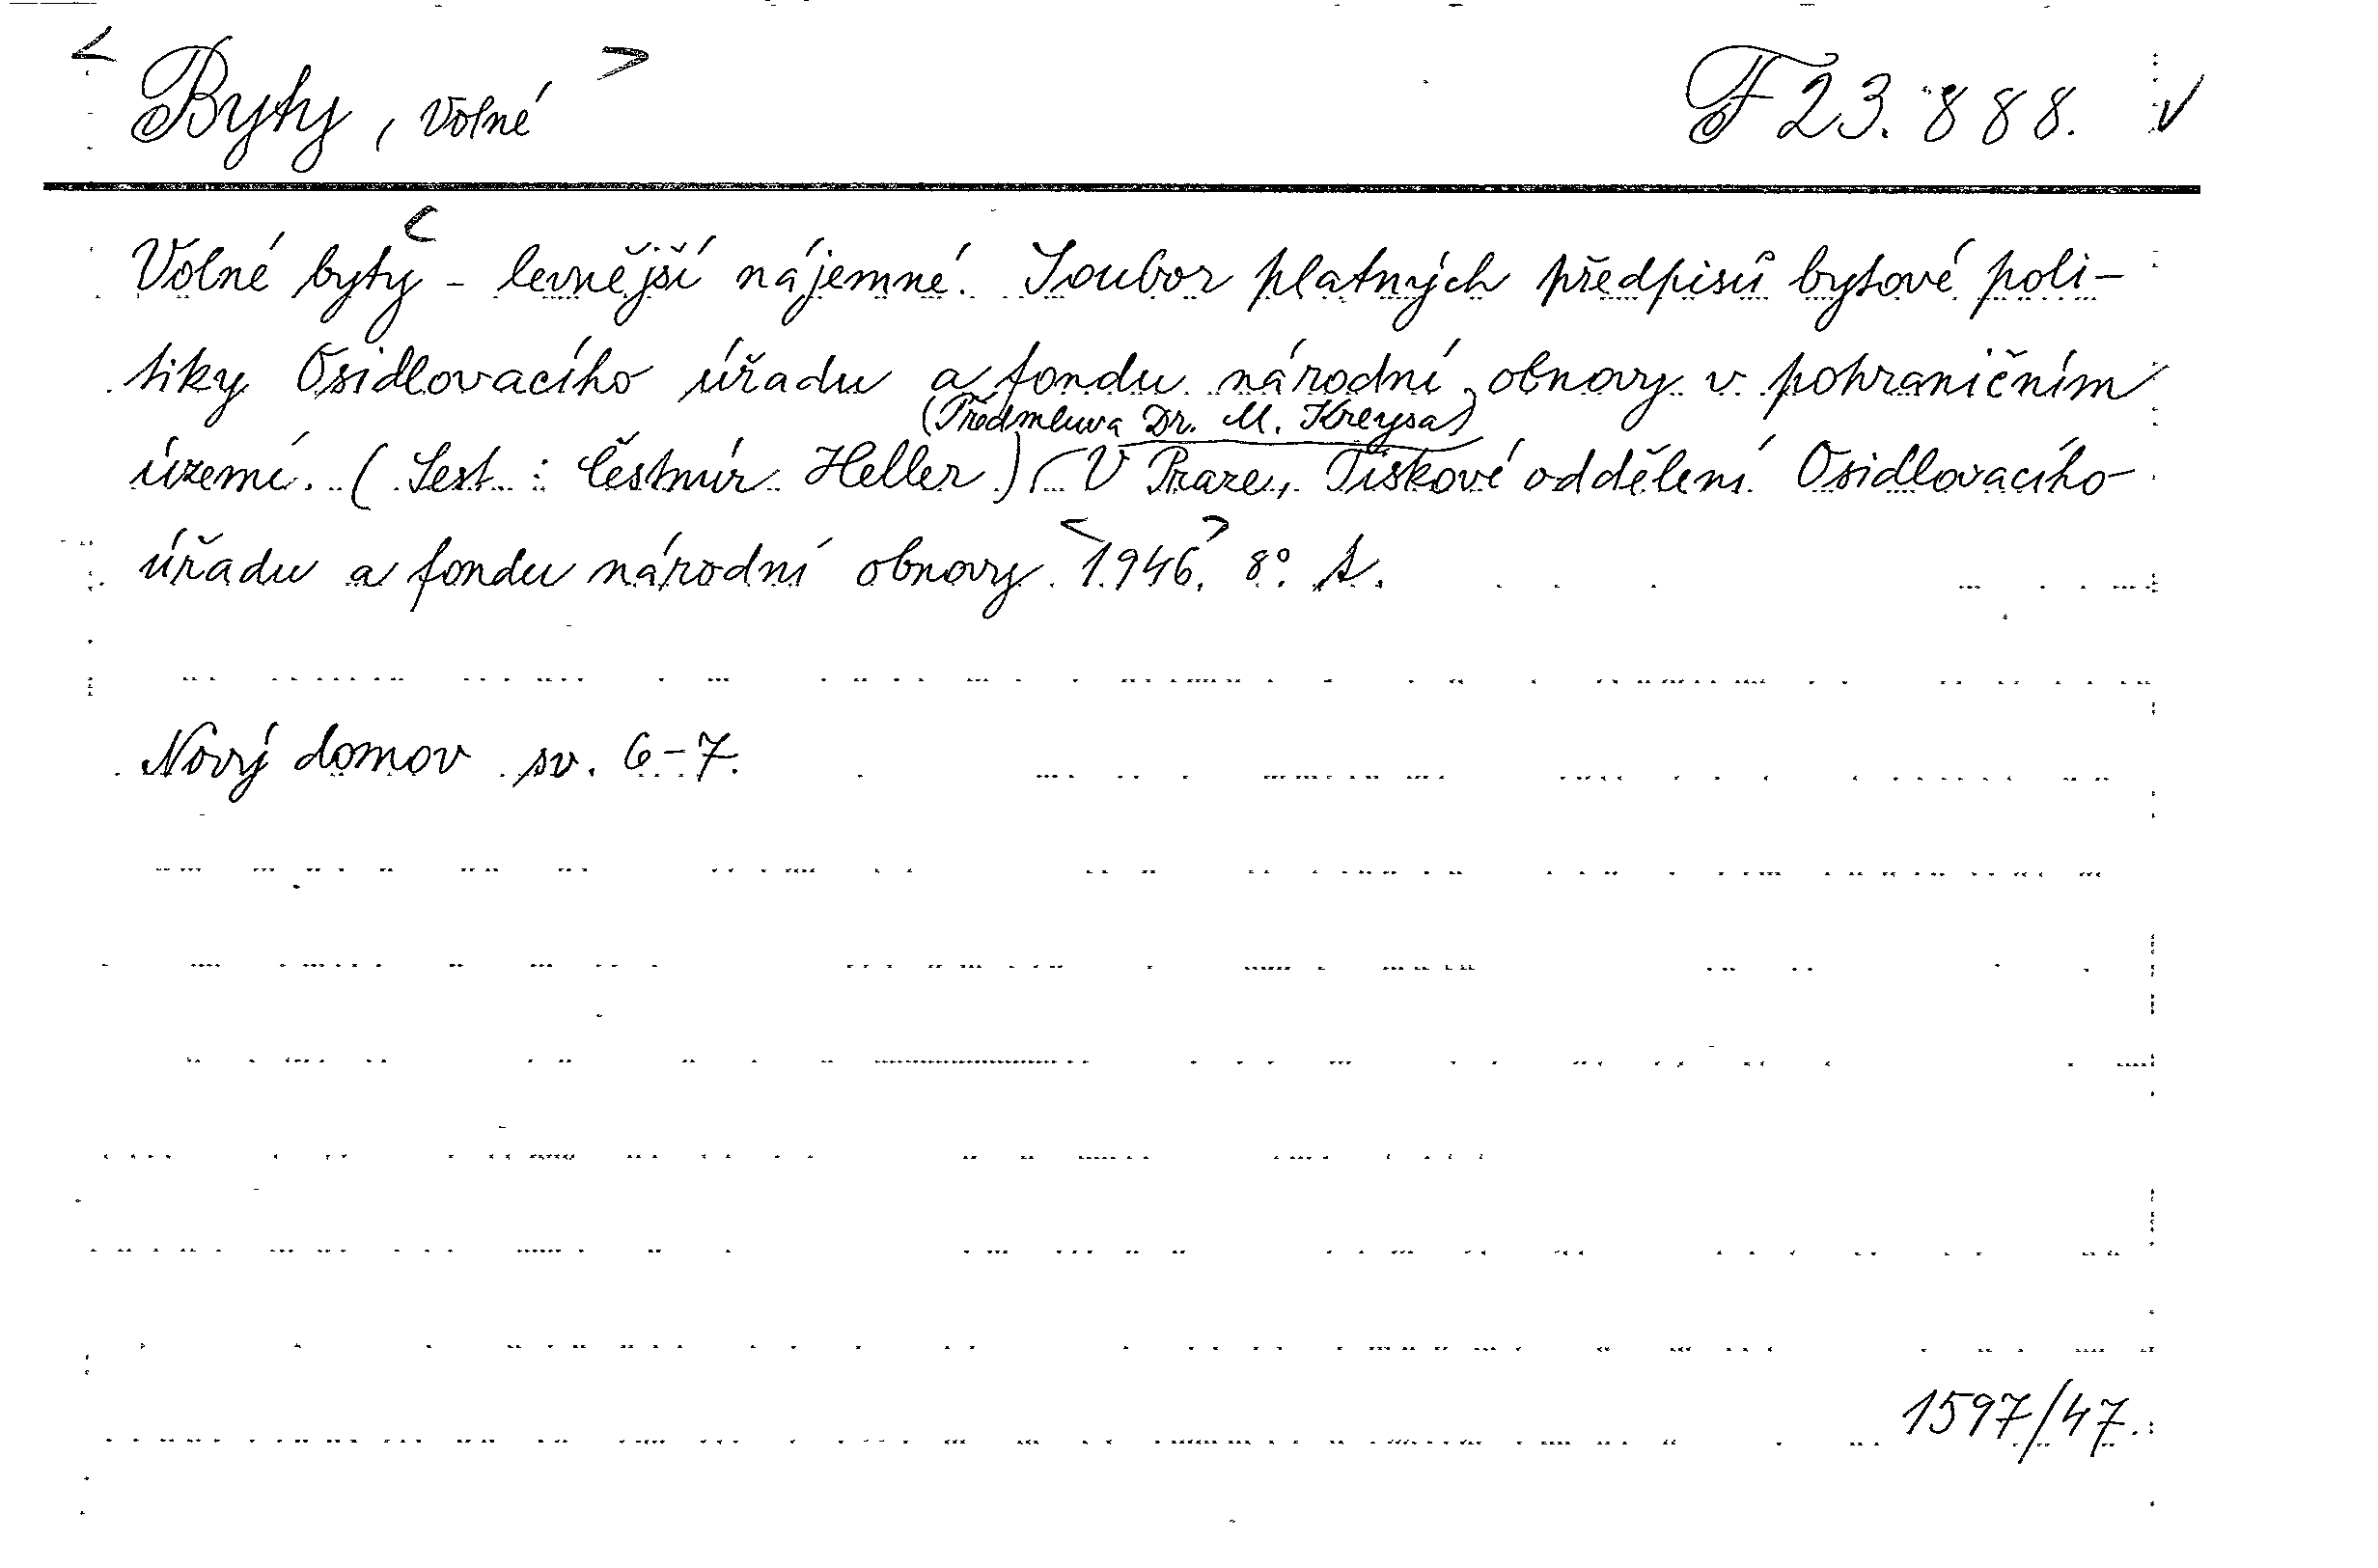 < Byty, Volné > F 23.888. ✓
Volné byty - levnější nájemné. Soubor platných předpisů bytové poli-
tiky Osidlovacího úřadu a fondu národní obnovy v pohraničním
(Předmluva Dr. M. Kreysa)
území. (Sest.: Čestmír Heller.) V Praze, Tiskové oddělení Osidlovacího
úřadu a fondu národní obnovy <1946>. 8°.
Nový domov sv. 6-7.
1597/47.